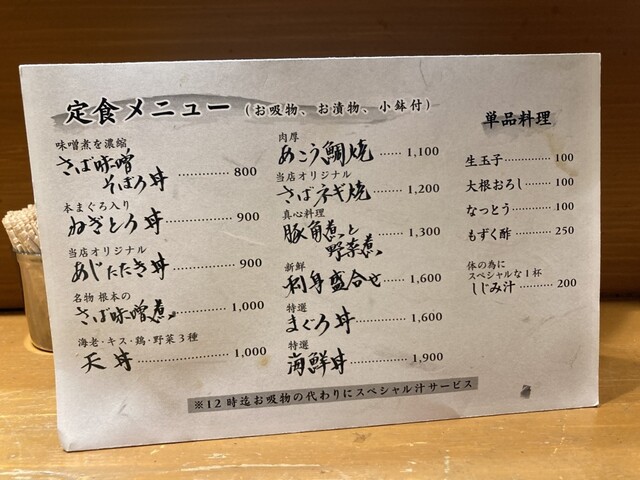 定食メニュー (お吸物、お漬物、小鉢付)
味噌煮を濃縮
さば味噌
そぼろ丼 ……… 800
本まぐろ入り
ねぎとろ丼 ……… 900
当店オリジナル
あじたたき丼 ……… 900
名物 根本の
さば味噌煮 ……… 1,000
海老・キス・鶏・野菜3種
天丼 ……… 1,000
肉厚
あこう鯛焼 ……… 1,100
当店オリジナル
さばネギ焼 ……… 1,200
真心料理
豚角煮と
野菜煮 ……… 1,300
新鮮
刺身盛合せ ……… 1,600
特選
まぐろ丼 ……… 1,600
特選
海鮮丼 ……… 1,900
単品料理
生玉子 ……… 100
大根おろし ……… 100
なっとう ……… 100
もずく酢 ……… 250
体の為に
スペシャルな1杯
しじみ汁 ……… 200
※12時迄お吸物の代わりにスペシャル汁サービス